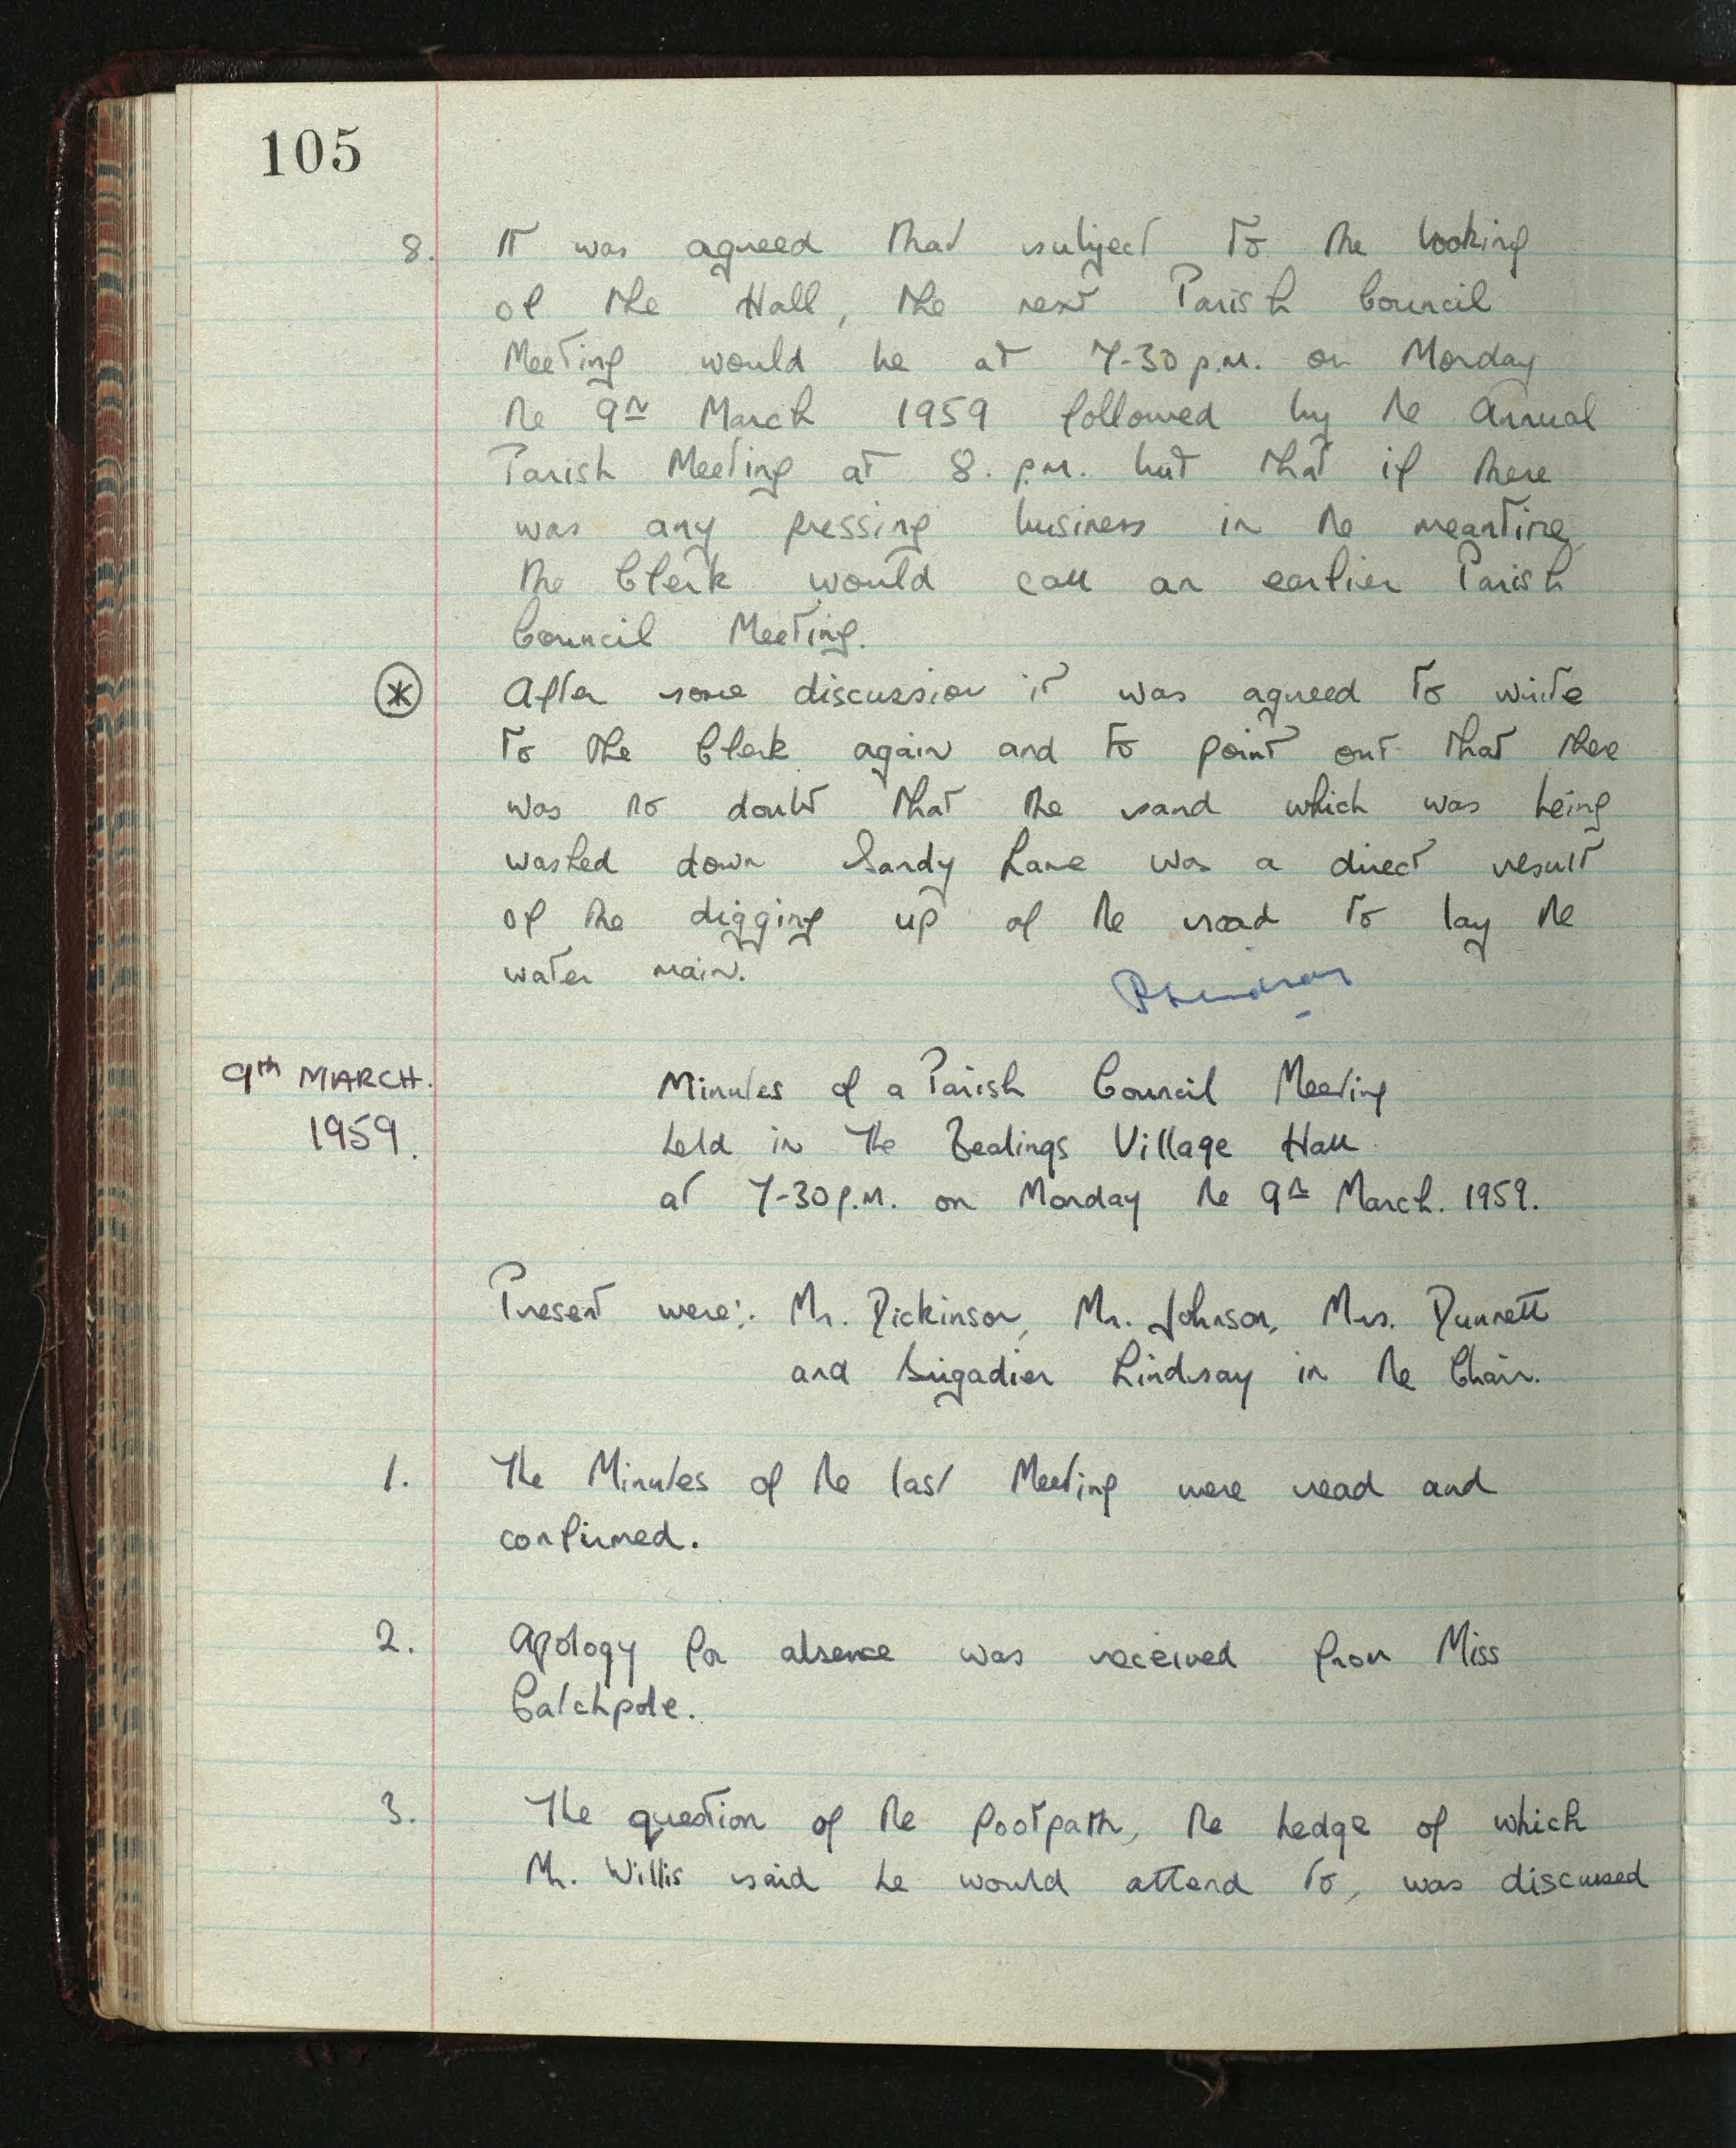 105
8. It was agreed that subject to the booking
of the Hall, the next Parish Council
Meeting would be at 7-30 p.m. on Monday
the 9th March 1959 followed by the Annual
Parish Meeting at 8. p.m. but that if there
was any pressing business in the meantime,
the Clerk would call an earlier Parish
Council Meeting.
* After some discussion it was agreed to write
to the Clerk again and to point out that there
was no doubt that the sand which was being
washed down Sandy Lane was a direct result
of the digging up of the road to lay the
water main.
9th MARCH. 1959.
Minutes of a Parish Council Meeting
held in the Bealings Village Hall
at 7-30 p.m. on Monday the 9th March. 1959.
Present were:- Mr. Dickinson, Mr. Johnson, Mrs. Dunnett
and Brigadier Lindsay in the Chair.
1. The Minutes of the last Meeting were read and
confirmed.
2. Apology for absence was received from Miss
Catchpole.
3. The question of the footpath, the hedge of which
Mr. Willis said he would attend to, was discussed